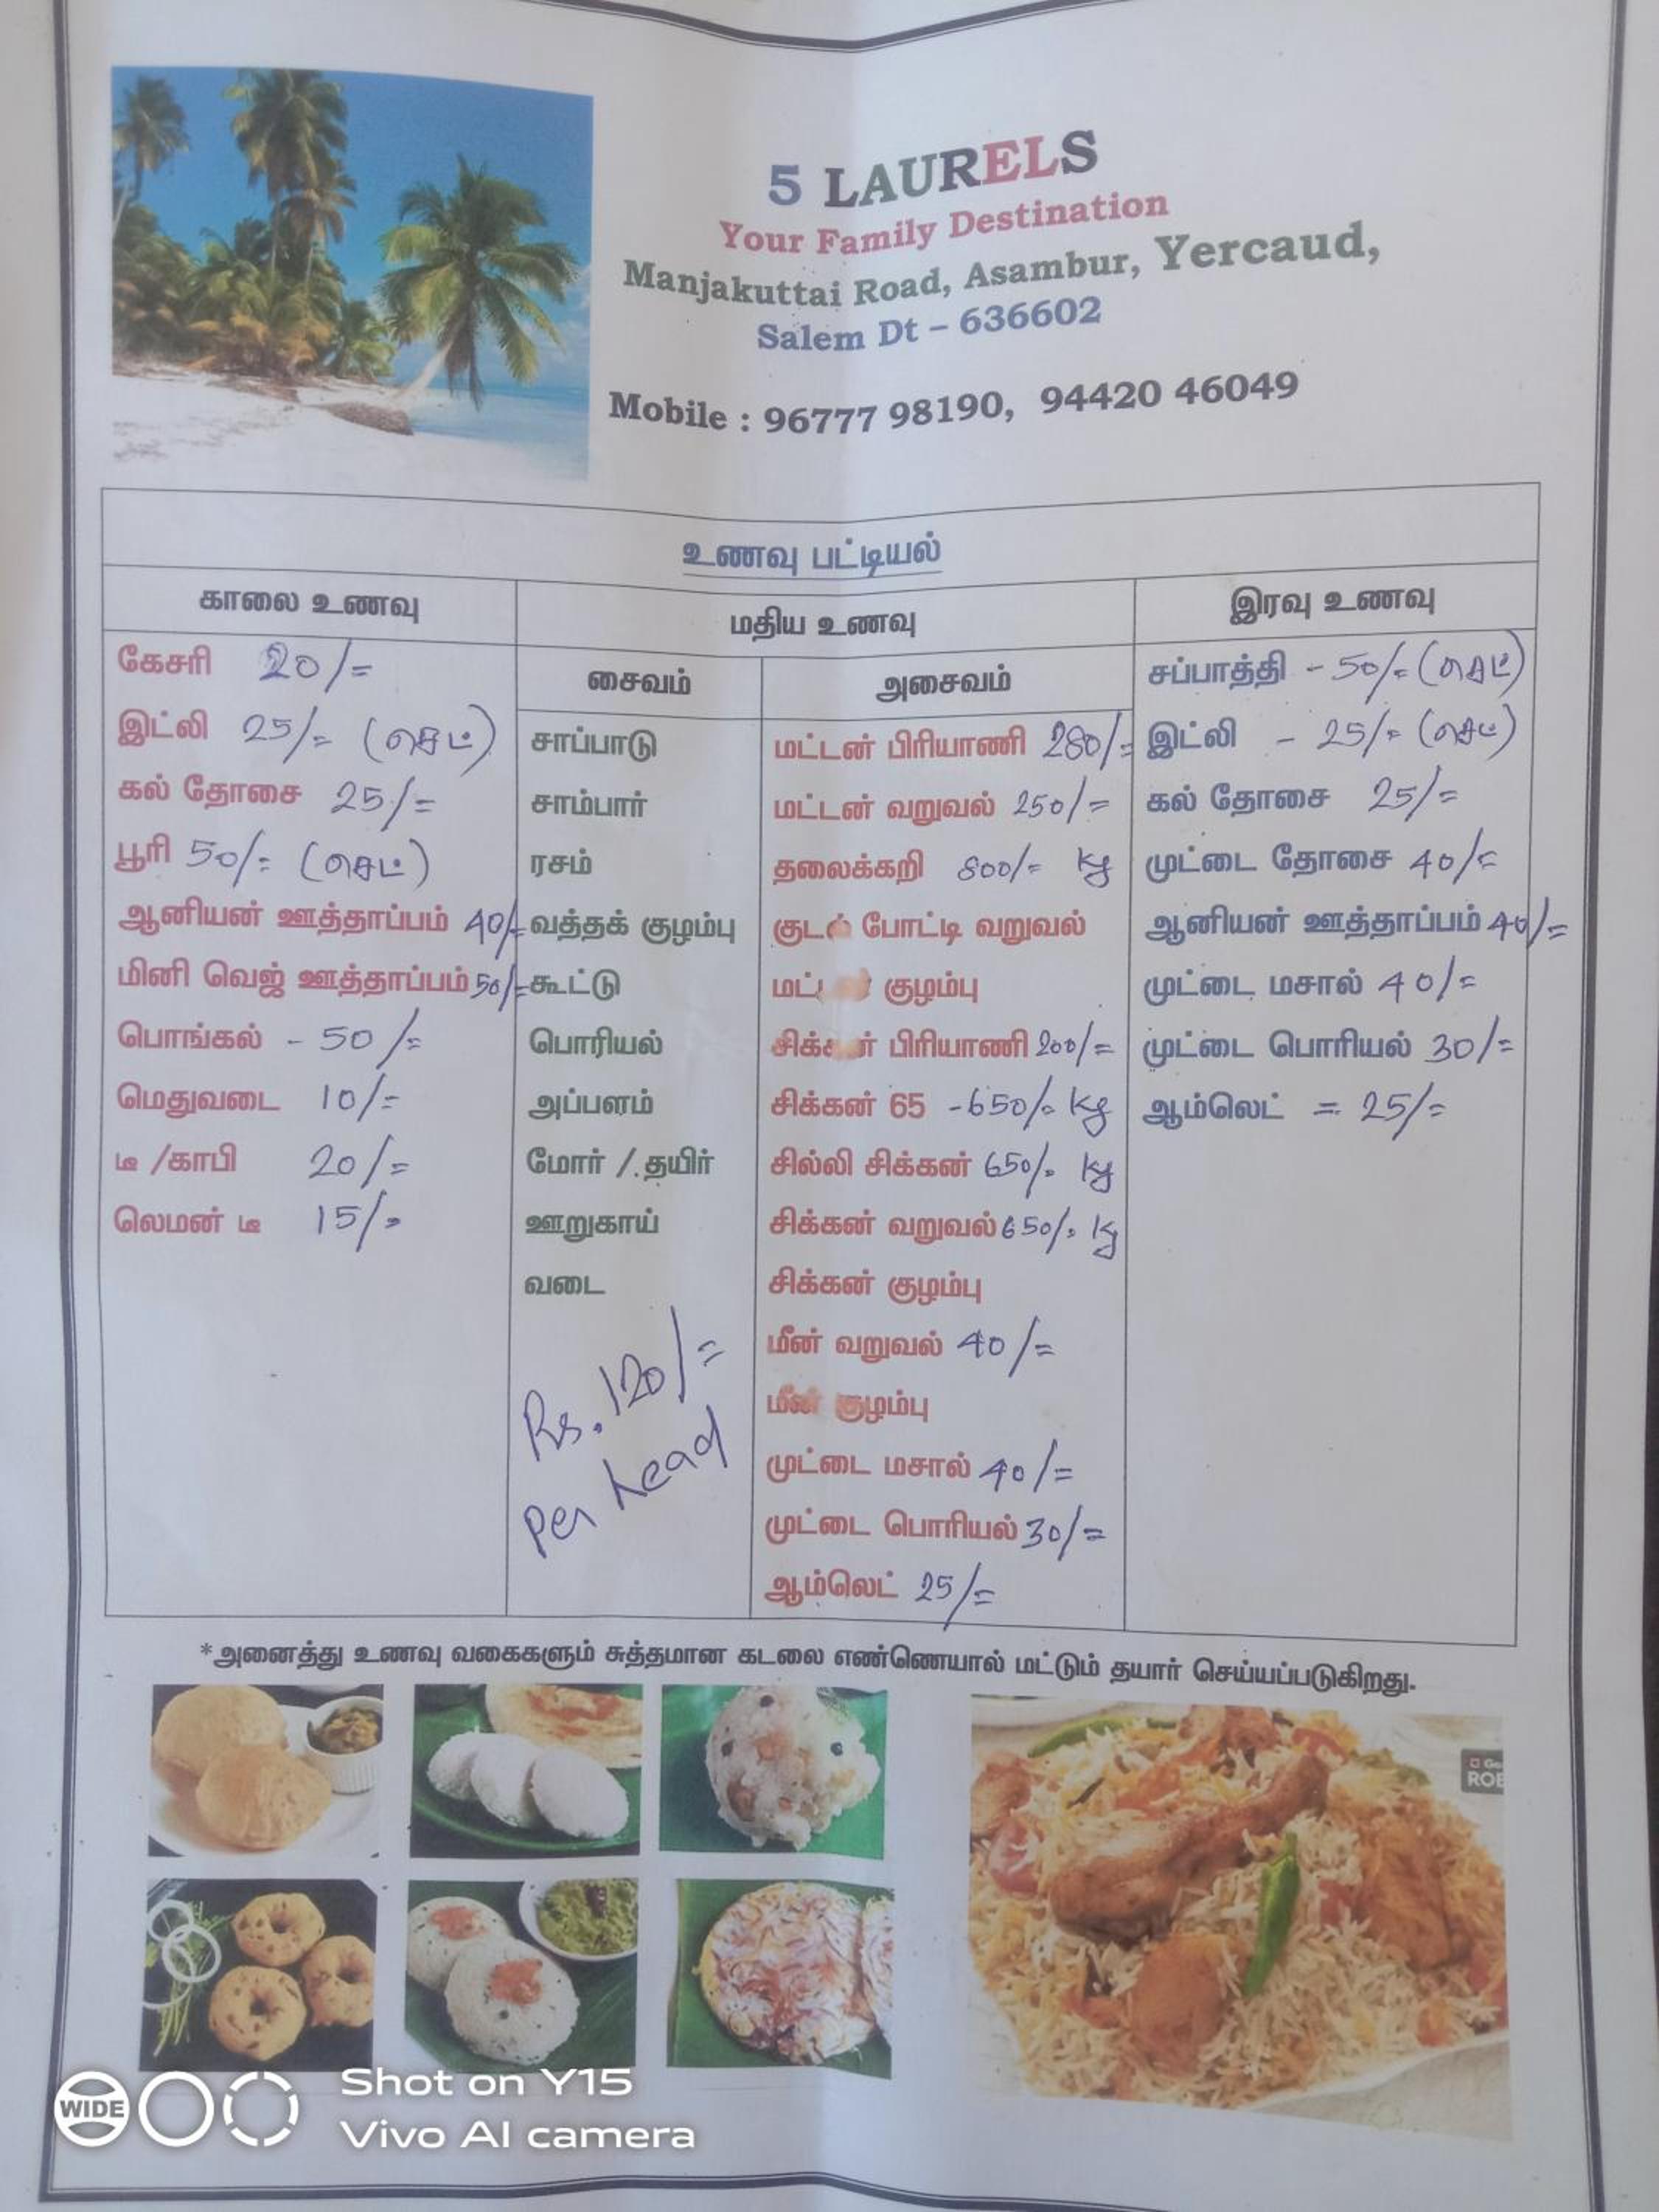 5 LAURELS
Your Family Destination
Manjakuttai Road, Asambur, Yercaud,
Salem Dt – 636602
Mobile : 96777 98190, 94420 46049
உணவு பட்டியல்
காலை உணவு
கேசரி 20/=
இட்லி 25/= (செட்)
கல் தோசை 25/=
பூரி 50/= (செட்)
ஆனியன் ஊத்தாப்பம் 40/=
மினி வெஜ் ஊத்தாப்பம் 50/=
பொங்கல் - 50/=
மெதுவடை 10/=
டீ /காபி 20/=
லெமன் டீ 15/=
மதிய உணவு
சைவம்
சாப்பாடு
சாம்பார்
ரசம்
வத்தக் குழம்பு
கூட்டு
பொரியல்
அப்பளம்
மோர் / தயிர்
ஊறுகாய்
வடை
Rs. 120/=
per head
அசைவம்
மட்டன் பிரியாணி 280/=
மட்டன் வறுவல் 250/=
தலைக்கறி 800/= kg
குடல் போட்டி வறுவல்
குழம்பு
சிக்கன் பிரியாணி 200/=
சிக்கன் 65 -650/= kg
சில்லி சிக்கன் 650/= kg
சிக்கன் வறுவல் 650/= kg
சிக்கன் குழம்பு
மீன் வறுவல் 40/=
மீன் குழம்பு
முட்டை மசால் 40/=
முட்டை பொரியல் 30/=
ஆம்லெட் 25/=
இரவு உணவு
சப்பாத்தி - 50/= (செட்)
இட்லி - 25/= (செட்)
கல் தோசை 25/=
முட்டை தோசை 40/=
ஆனியன் ஊத்தாப்பம் 40/=
முட்டை மசால் 40/=
முட்டை பொரியல் 30/=
ஆம்லெட் = 25/=
*அனைத்து உணவு வகைகளும் சுத்தமான கடலை எண்ணெயால் மட்டும் தயார் செய்யப்படுகிறது.
WIDE
Shot on Y15
Vivo AI camera